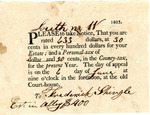 1803.
PLEASE to take Notice, That you are
rated 633 dollars, at 30
cents in every hundred dollars for your
Estate; and a Personal-tax of
dollars and 30 cents, in the County-tax,
for the present Year. The day of appeal
is on the 6 day of June
nine o'clock in the forenoon, at the old
Court-house.
To Frederick Shingle